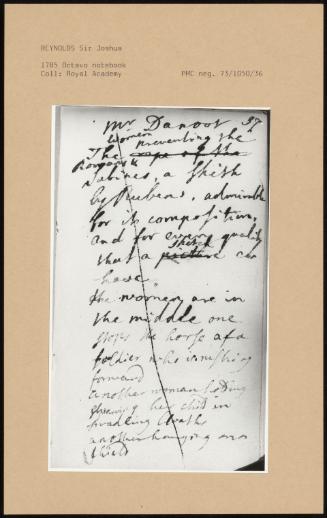 REYNOLDS Sir Joshua
1785 Octavo notebook
Coll: Royal Academy
PMC neg. 73/1050/36
Mr Danoot 37
Women preventing the
The rape of the
Romans &
Sabines, a skith
by Rubens, admirable
for its composition,
and for every quality
sketch
that a picture can
have.
the women are in
the middle one
stops the horse of a
soldier who is rushing
forward
another woman holding
her child in
swadling cloaths
another hanging on a
shield